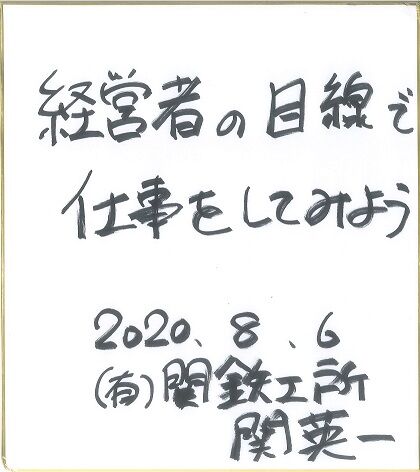 経営者の目線で
仕事をしてみよう
2020.8.6
(有)関鉄工所
関英一